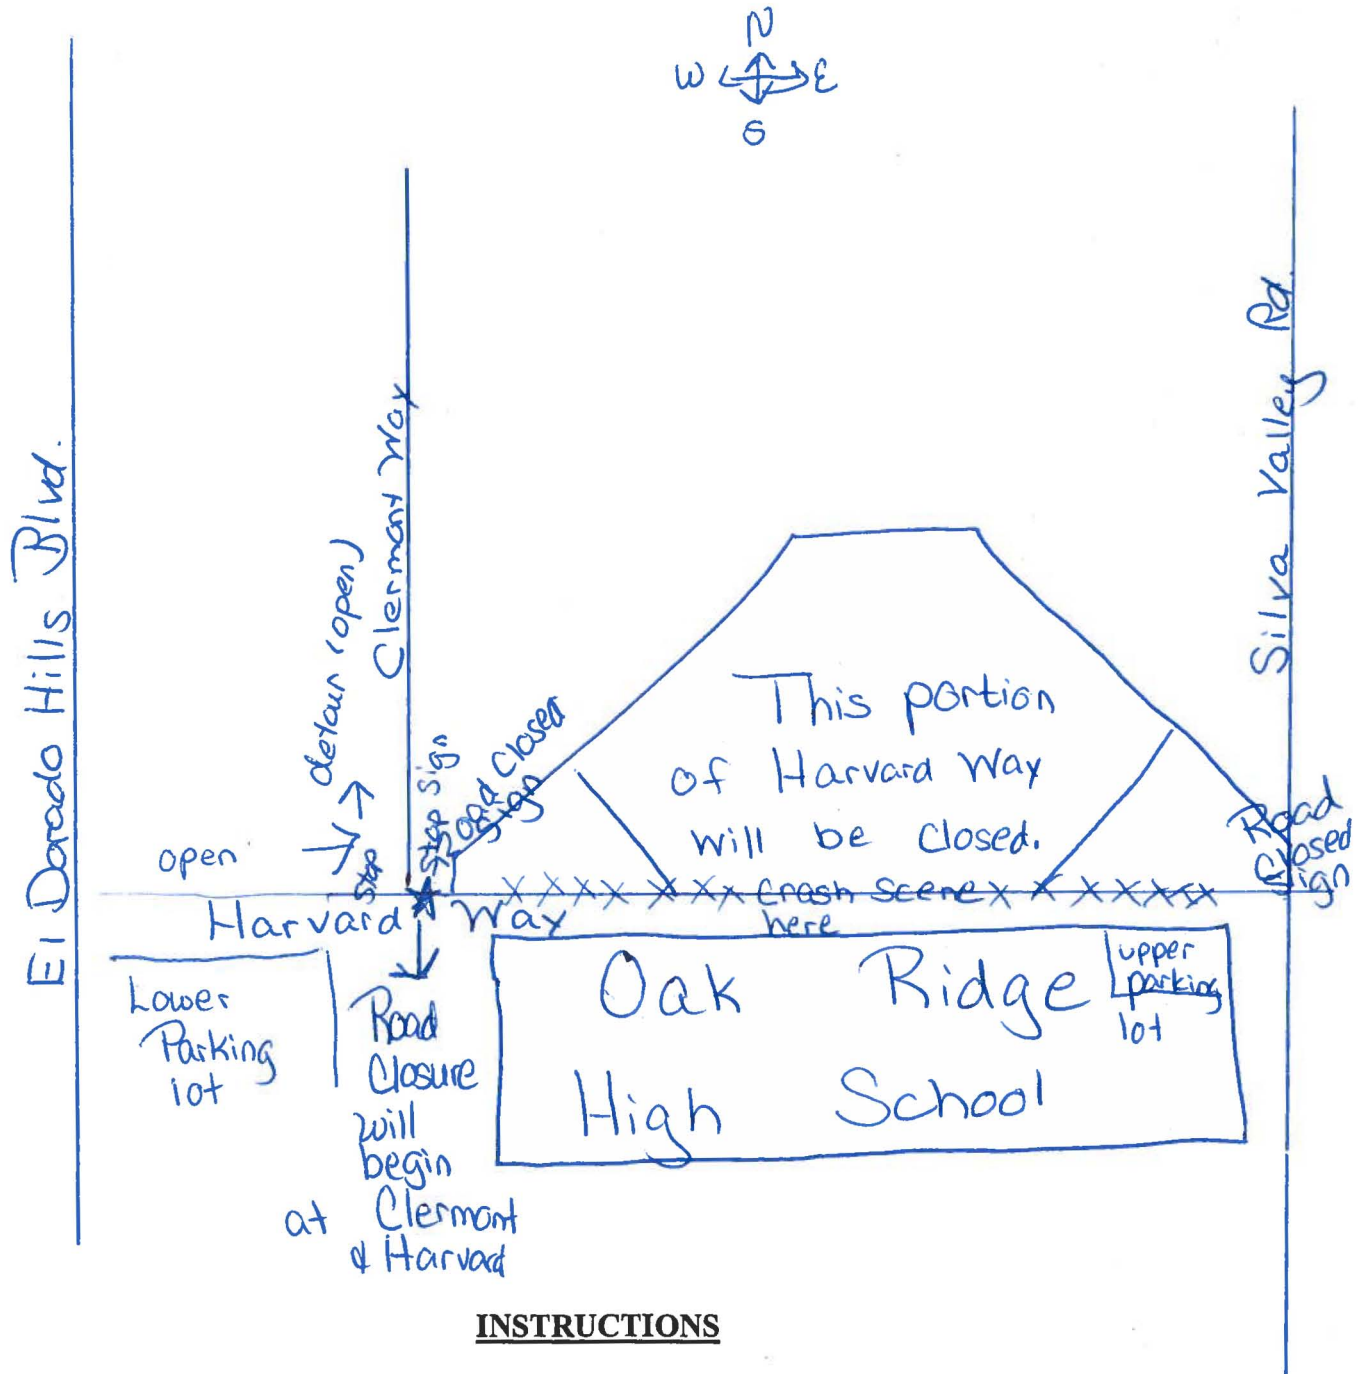 N
W E
S
El Dorado Hills Blvd.
Clermont Way
Silva Valley Rd.
detour (open)
open
Stop
Stop Sign
Road Closed
Sign
This portion
of Harvard Way
will be closed.
Road
Closed
Sign
Harvard Way
XXXX X XX Crash Scene X X XXXXX
here
Lower
Parking
lot
Road
Closure
will
begin
at Clermont
& Harvard
Oak Ridge
High School
upper
parking
lot
INSTRUCTIONS